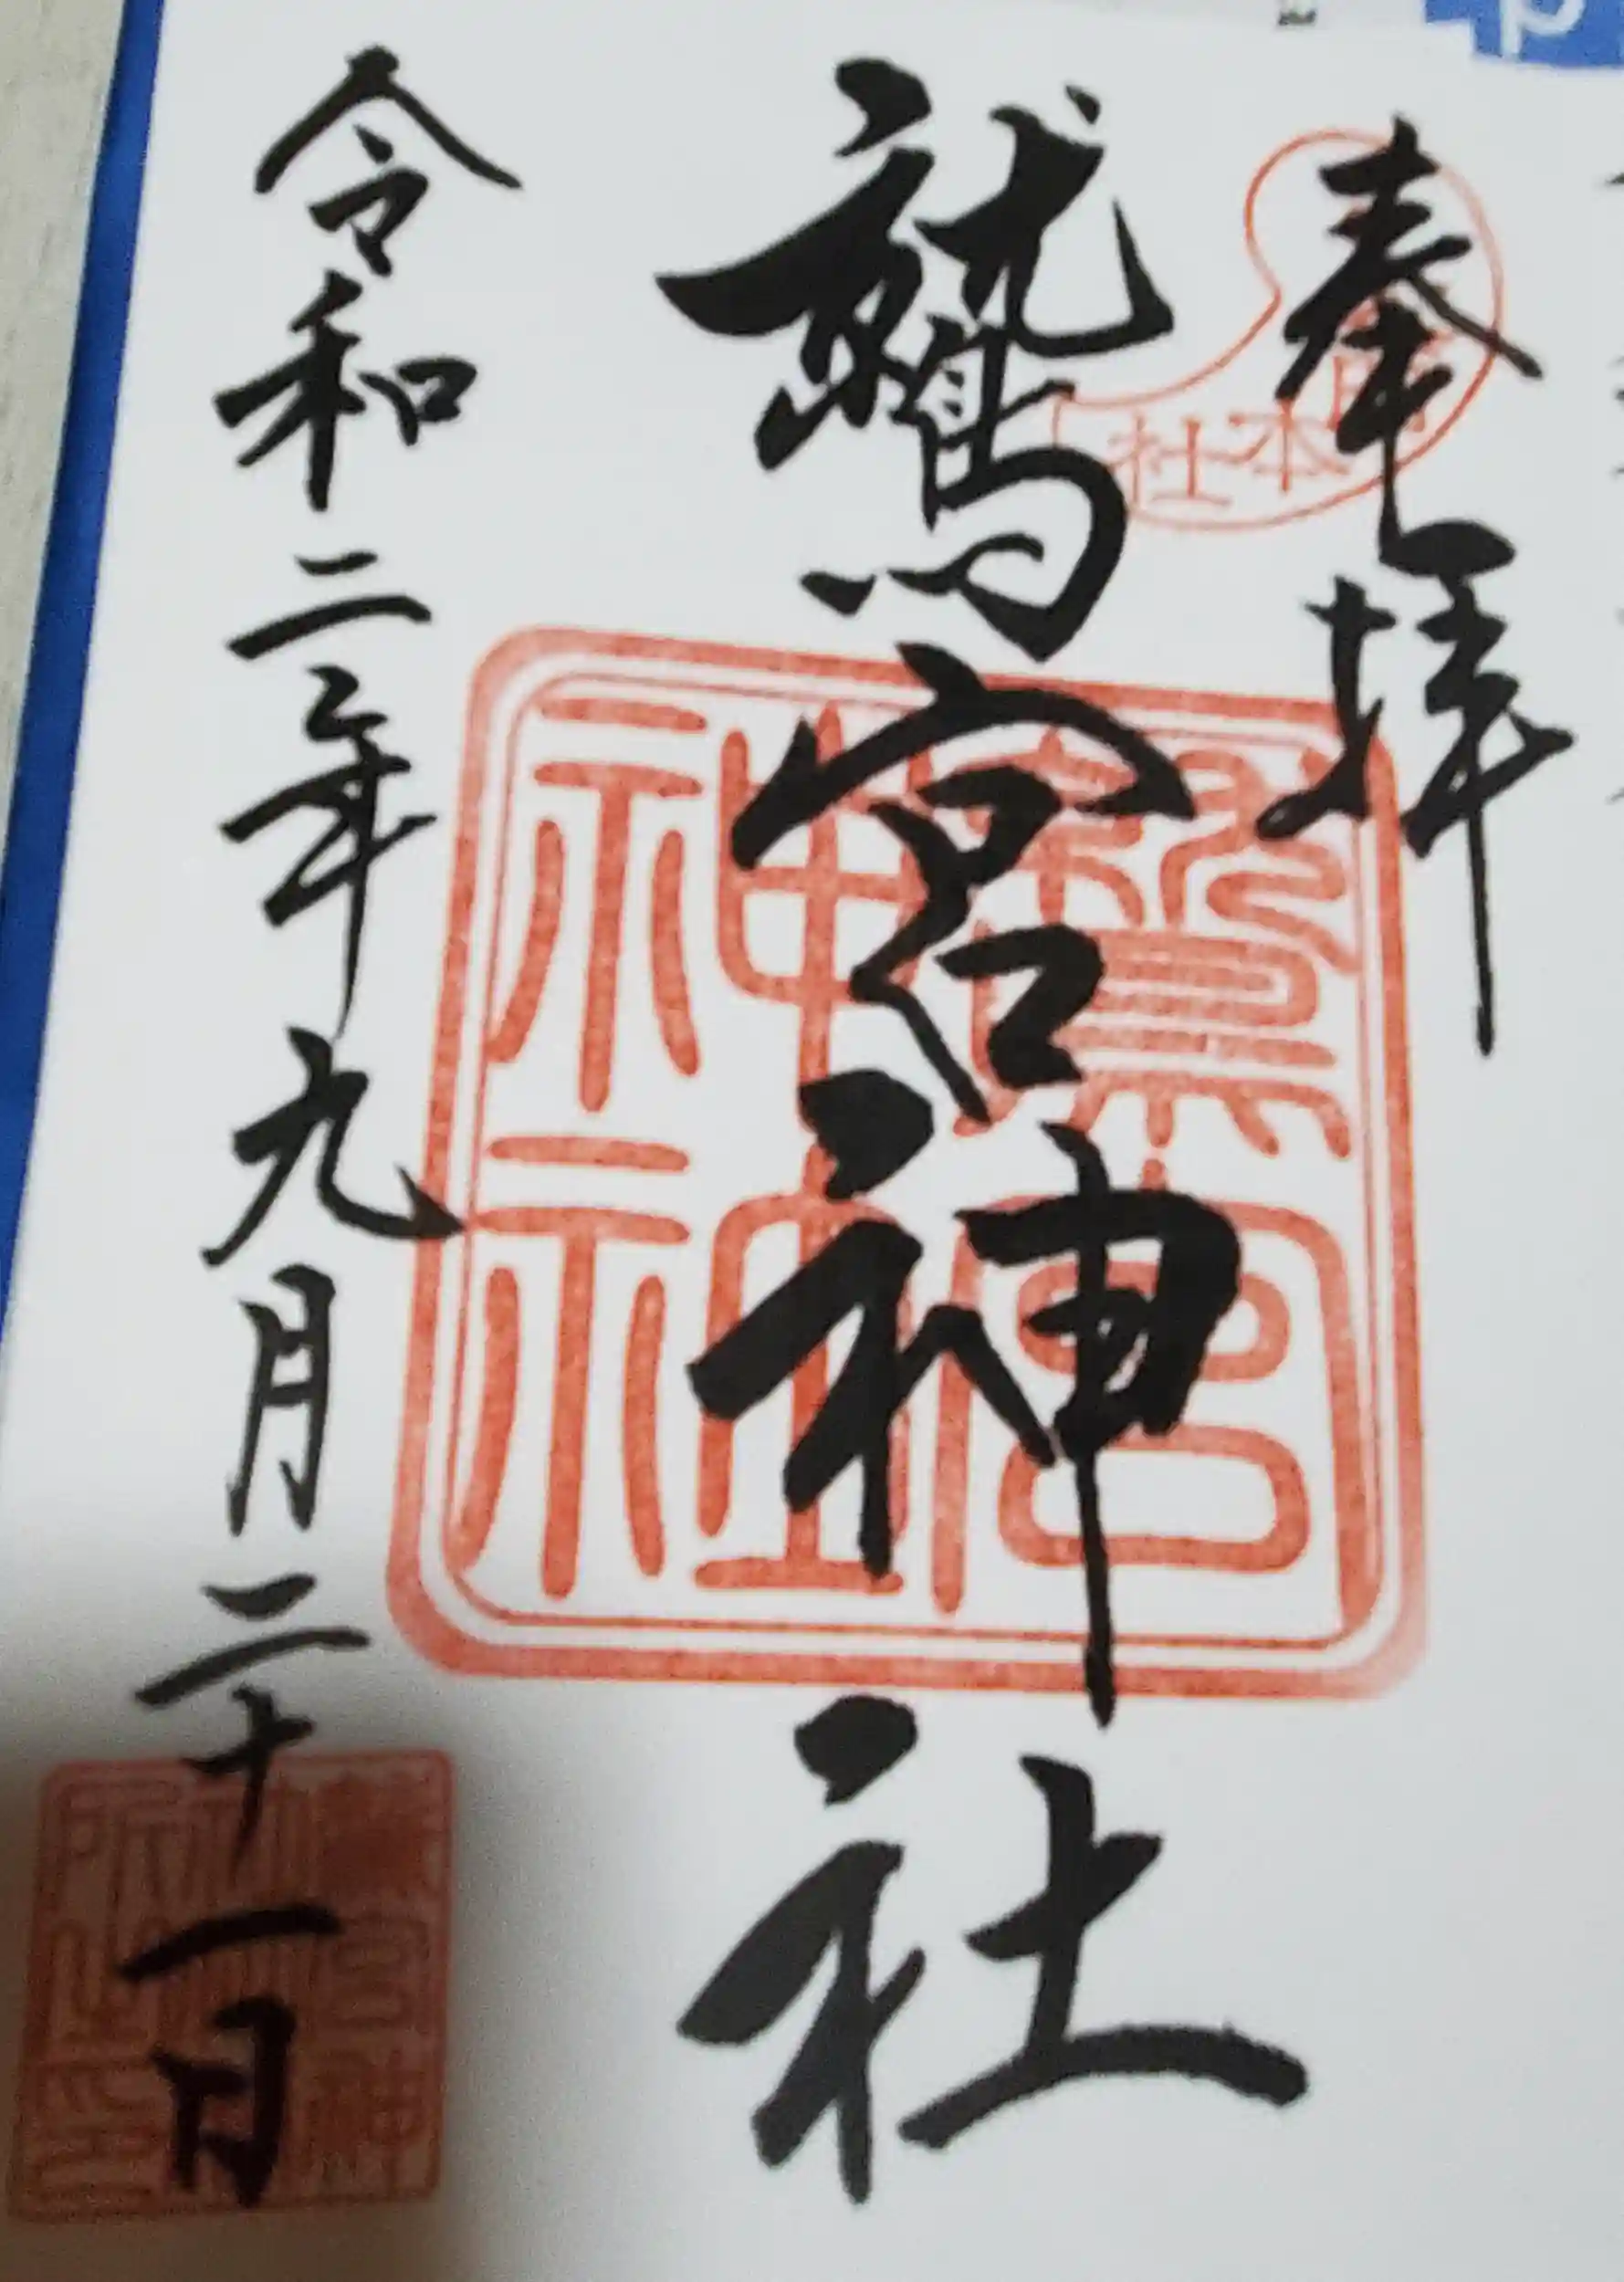 奉拝
本社
鷲宮神社
鷲宮神社
令和二年九月二十一日